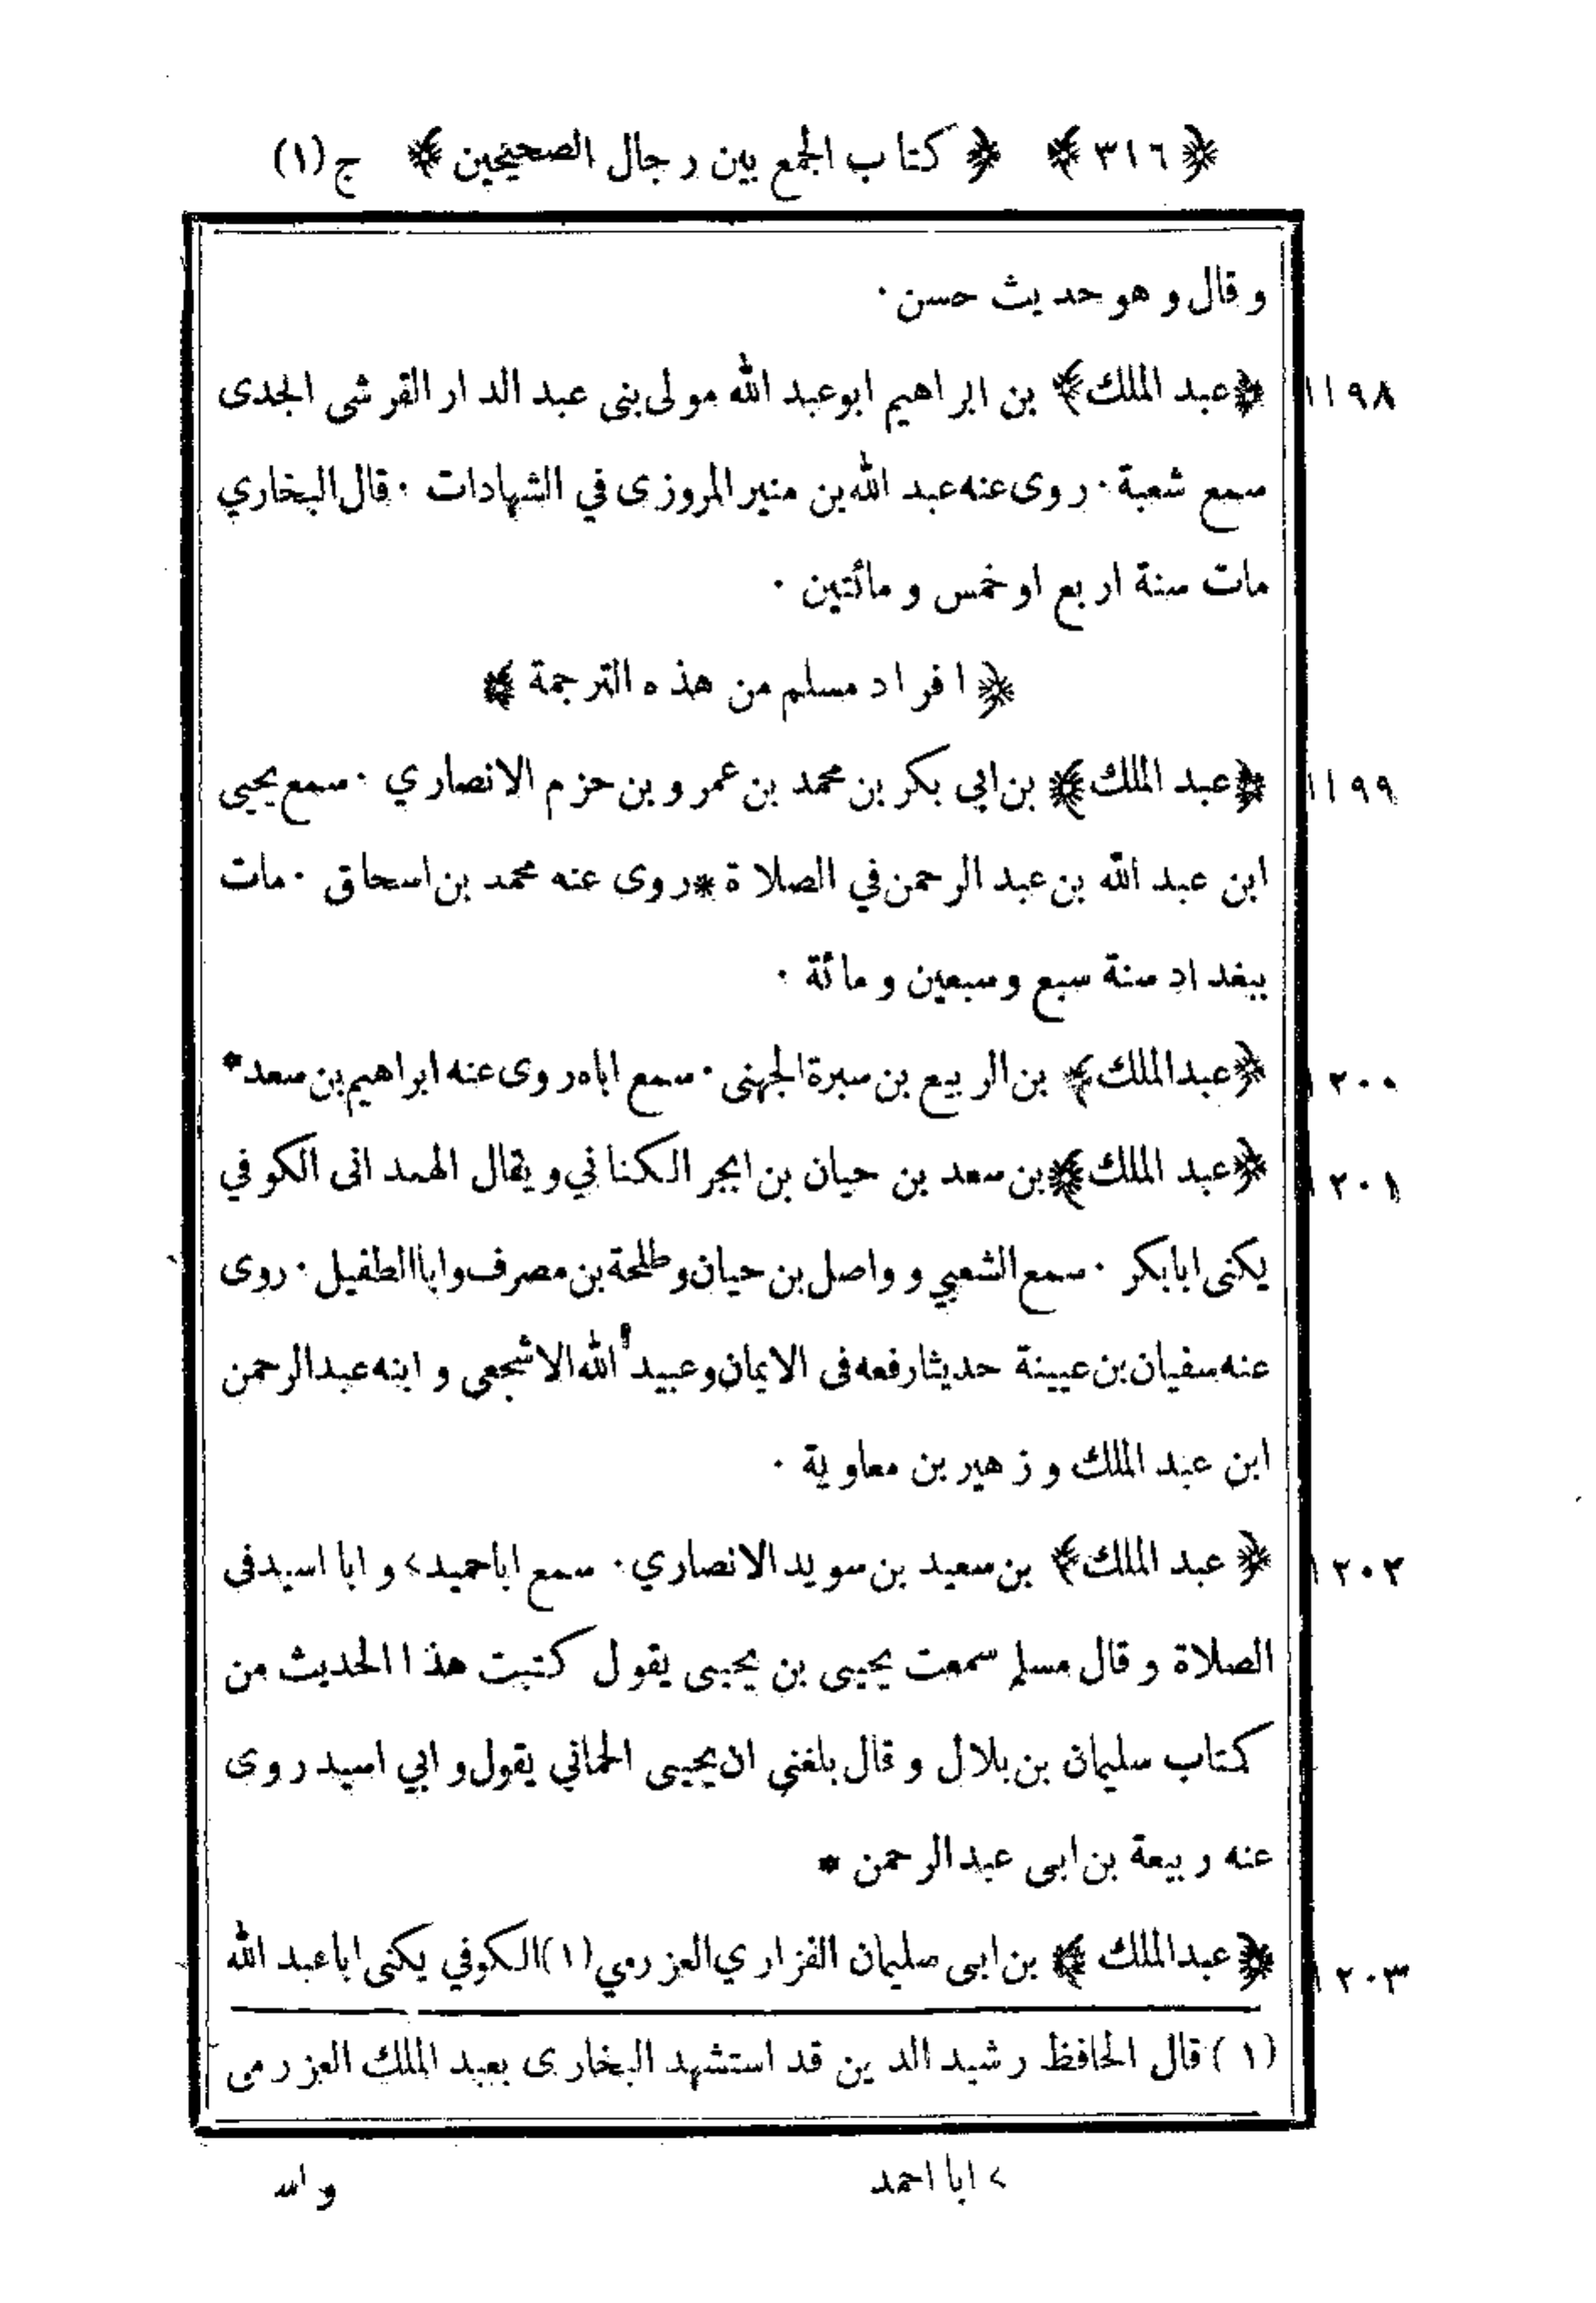 ﴿ ٣١٦ ﴾ ﴿ كتاب الجمع بين رجال الصحيحين ﴾ ج (١)
وقال وهو حديث حسن ٠
١١٩٨ ﴿عبد الملك﴾ بن ابراهيم ابو عبد الله مولى بنى عبد الدار القرشى الجدى
سمع شعبة ٠ روى عنه عبد الله بن منير المروزى في الشهادات ٠ قال البخاري
مات سنة اربع او خمس و مائتين ٠
﴿ افراد مسلم من هذه الترجمة ﴾
١١٩٩ ﴿عبد الملك﴾ بن ابي بكر بن محمد بن عمرو بن حزم الانصاري ٠ سمع يحيى
ابن عبد الله بن عبد الرحمن في الصلاة * روى عنه محمد بن اسحاق ٠ مات
ببغداد سنة سبع وسبعين و مائة ٠
١٢٠٠ ﴿عبد الملك﴾ بن الربيع بن سبرة الجهنى ٠ سمع اباه روى عنه ابراهيم بن سعد *
١٢٠١ ﴿عبد الملك﴾ بن سعد بن حيان بن ابجر الكناني ويقال الهمدانى الكوفي
يكنى ابا بكر ٠ سمع الشعبي و واصل بن حيان وطلحة بن مصرف وابا الطفيل ٠ روى
عنه سفيان بن عيينة حديثا رفعه فى الايمان وعبيد الله الاشجعى و ابنه عبد الرحمن
ابن عبد الملك و زهير بن معاوية ٠
١٢٠٢ ﴿ عبد الملك﴾ بن سعيد بن سويد الانصاري ٠ سمع ابا حميد > و ابا اسيد فى
الصلاة و قال مسلم سمعت يحيى بن يحيى يقول كتبت هذا الحديث من
كتاب سليمان بن بلال و قال بلغني ان يحيى الحماني يقول و ابي اسيد روى
عنه ربيعة بن ابى عبد الرحمن *
١٢٠٣ ﴿عبد الملك ﴾ بن ابى سليمان الفزاري العزرمي (١) الكوفي يكنى ابا عبد الله
(١) قال الحافظ رشيد الدين قد استشهد البخارى بعبد الملك العزرمى
> ابا احمد
و الله